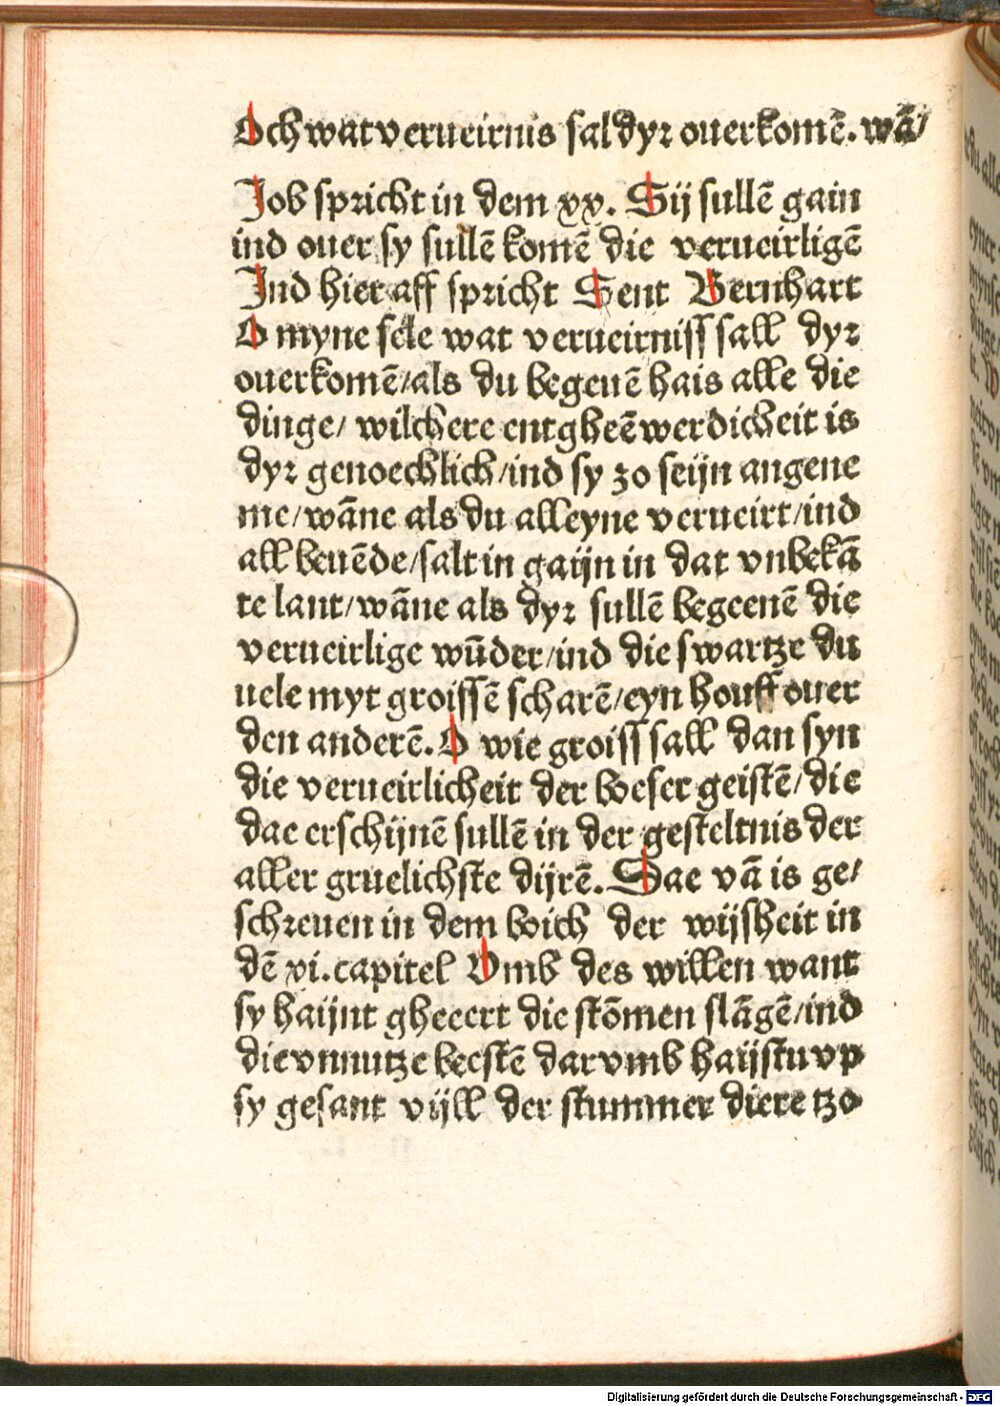 Och wat verueirnis sal dyr ouerkomē. wā/
Job spricht in dem xx. Sij sullē gain
ind ouer sy sullē komē die verueirligē
Ind hier aff spricht Sent Bernhart
O myne sele wat verueirniss sall dyr
ouerkomē/als du begeuē hais alle die
dinge/ wilchere entgheēwerdicheit is
dyr genoechlich/ind sy zo seijn angene
me/wāne als du alleyne verueirt/ind
all beuēde/salt in gaijn in dat vnbekā
te lant/wāne als dyr sullē begeenē die
verueirlige wūder/ind die swartze du
uele myt groissē scharē/eyn houff ouer
den anderē. O wie groiss sall dan syn
die verueirlicheit der boeser geistē/die
dae erschijnē sullē in der gesteltnis der
aller gruelichste dijrē. Dae vā is ge/
schreuen in dem boich der wijsheit in
dē xi. capitel Vmb des willen want
sy haijnt gheeert die stōmen slāgē/ind
die vnnutze beestē dar vmb haijstu vp
sy gesant vijll der stummer diere tzo
Digitalisierung gefördert durch die Deutsche Forschungsgemeinschaft - DFG